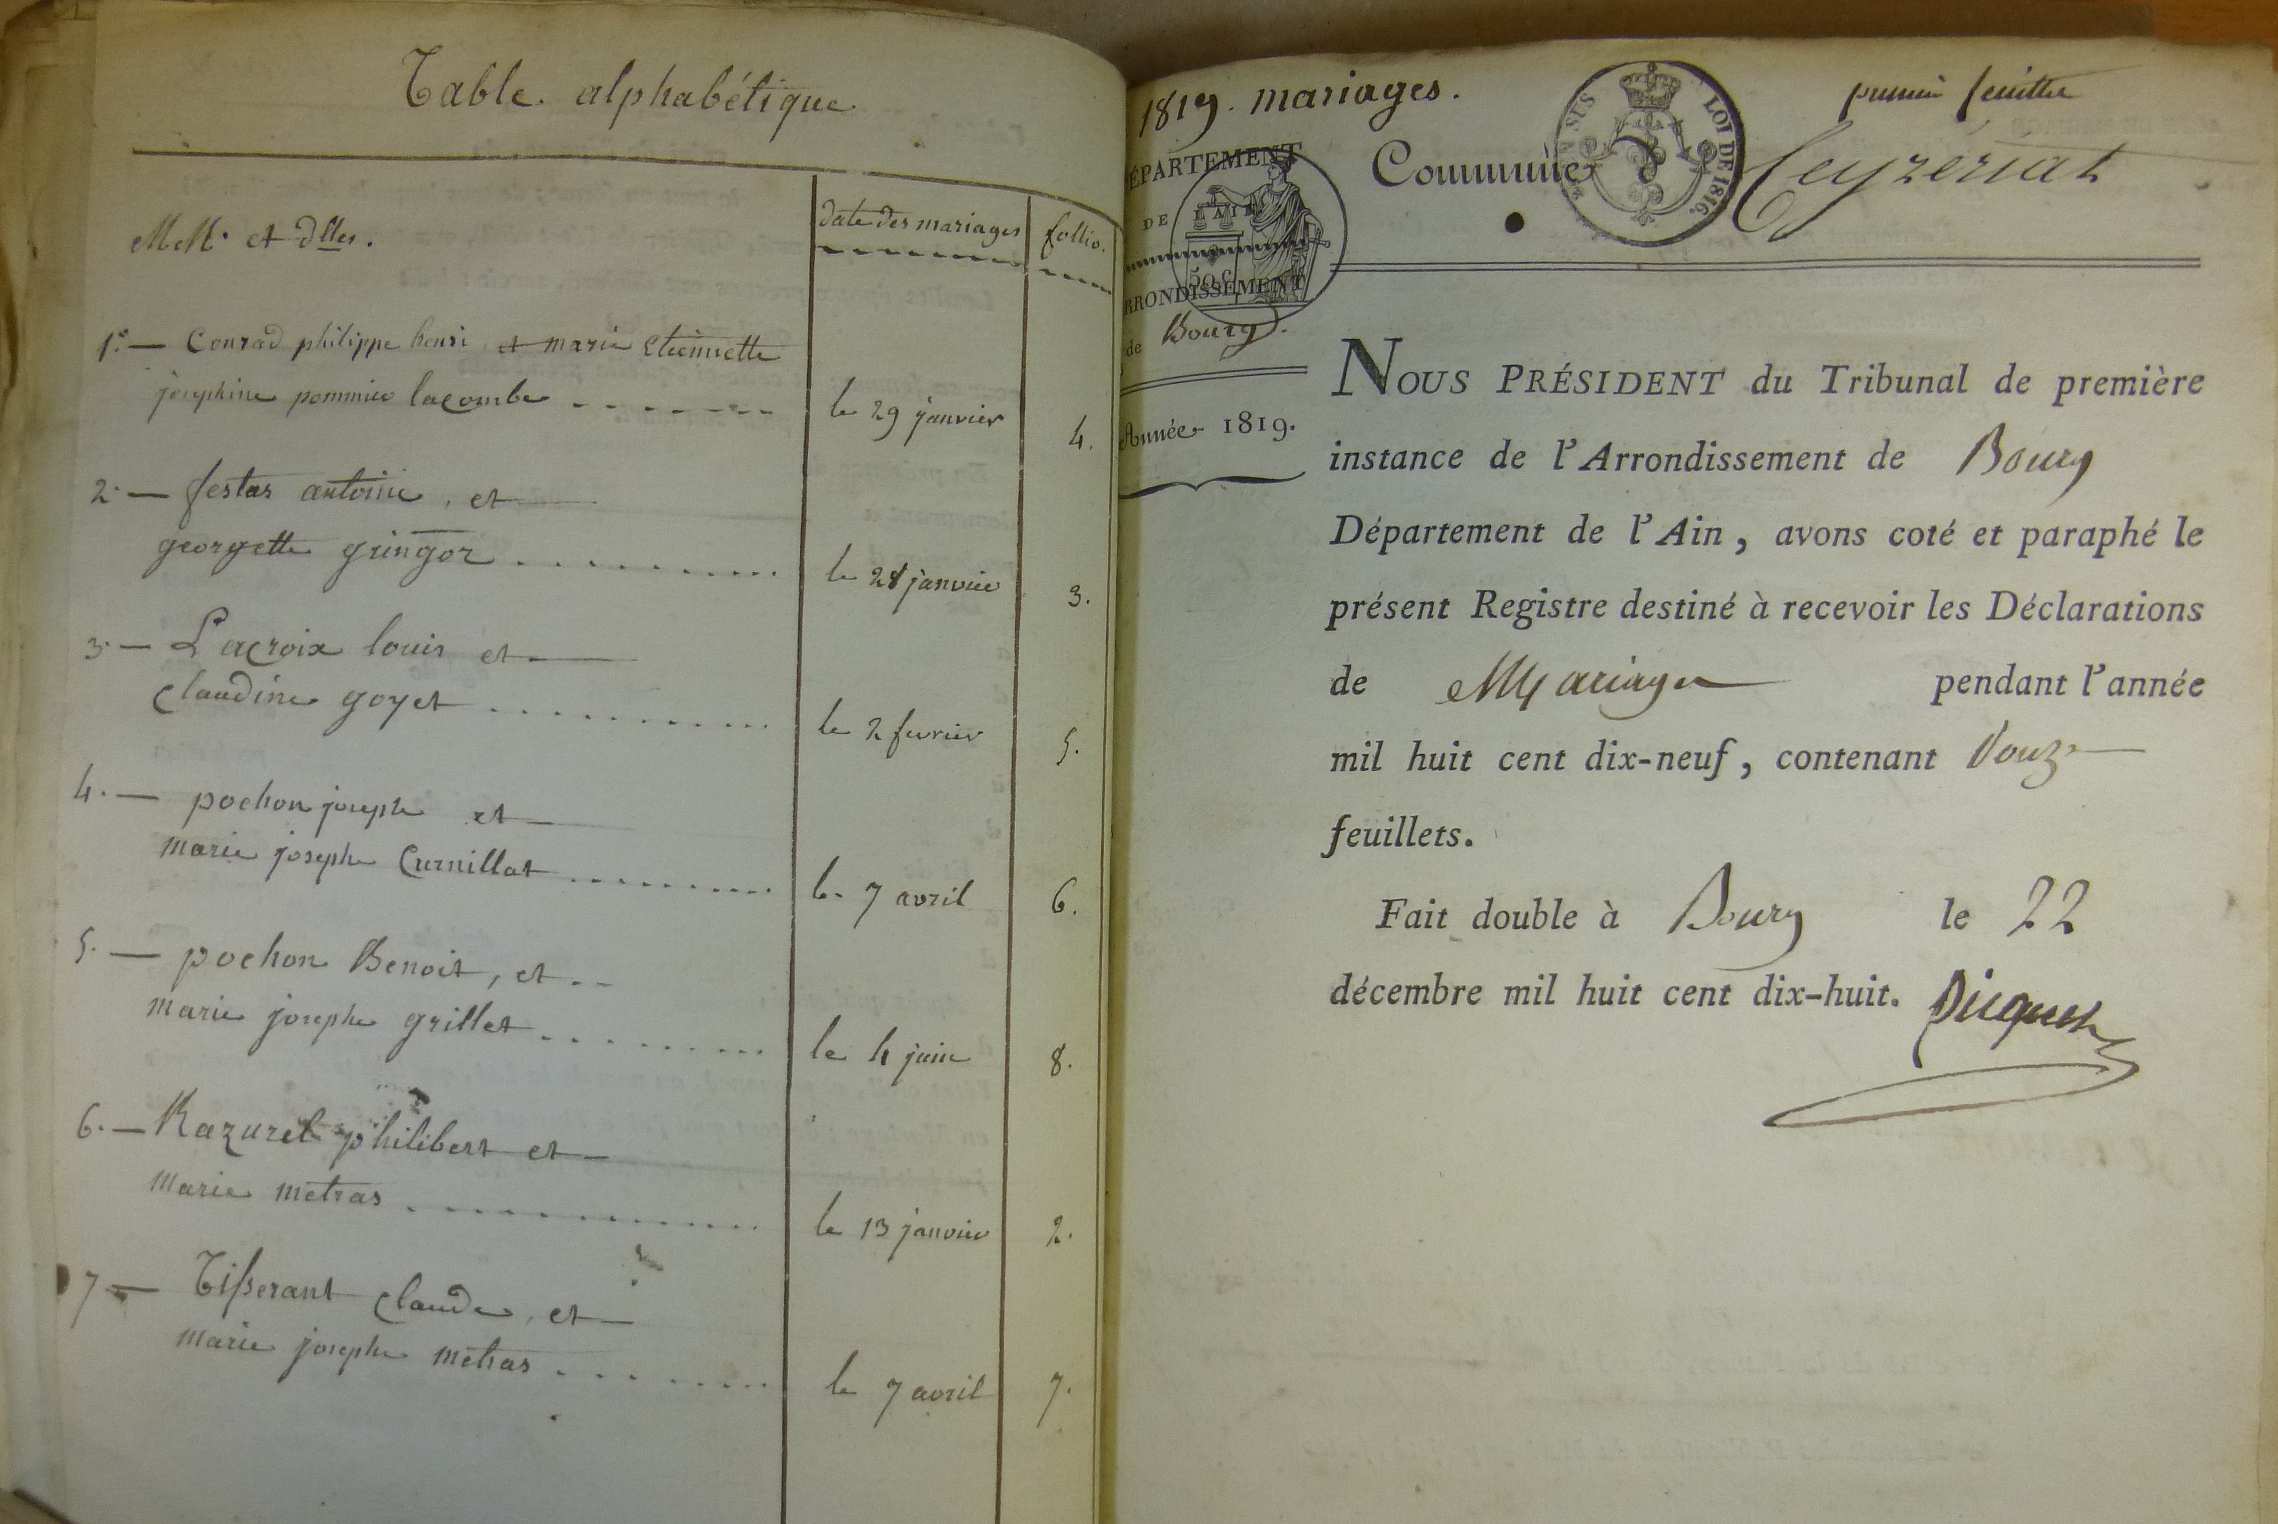 Table alphabétique
MM. et dlles.
date des mariages
follio.
1.° — Conrad philippe henri et marie etiennette
josephine pommier lacombe - - - - - - - le 29 janvier 4.
2. — festas antoine, et —
georgette gringoz . . . . . . . . . . . le 28 janvier 3.
3. — Lacroix louis et —
claudine goyet . . . . . . . . . . . le 2 fevrier 5.
4. — pochon joseph et —
marie josephe Curnillat . . . . . . . . . . le 7 avril 6.
5. — pochon Benoit, et - -
marie josephe grillet . . . . . . . . . le 4 juin 8.
6. — Razurel philibert et —
marie metras . . . . . . . . . . . . . . le 13 janvier 2.
7 — Tisserant claude, et —
marie josephe metras . . . . . . . . le 7 avril 7.
1819. mariages.
premier feuillet
DÉPARTEMENT
DE L'AIN
50 c
ARRONDISSEMENT
de Bourg.
Année 1819.
Commune de Ceyzériat
LOI DE 1816.
NOUS PRÉSIDENT du Tribunal de première
instance de l'Arrondissement de Bourg
Département de l'Ain, avons coté et paraphé le
présent Registre destiné à recevoir les Déclarations
de Mariages pendant l'année
mil huit cent dix-neuf, contenant Douze
feuillets.
Fait double à Bourg le 22
décembre mil huit cent dix-huit.